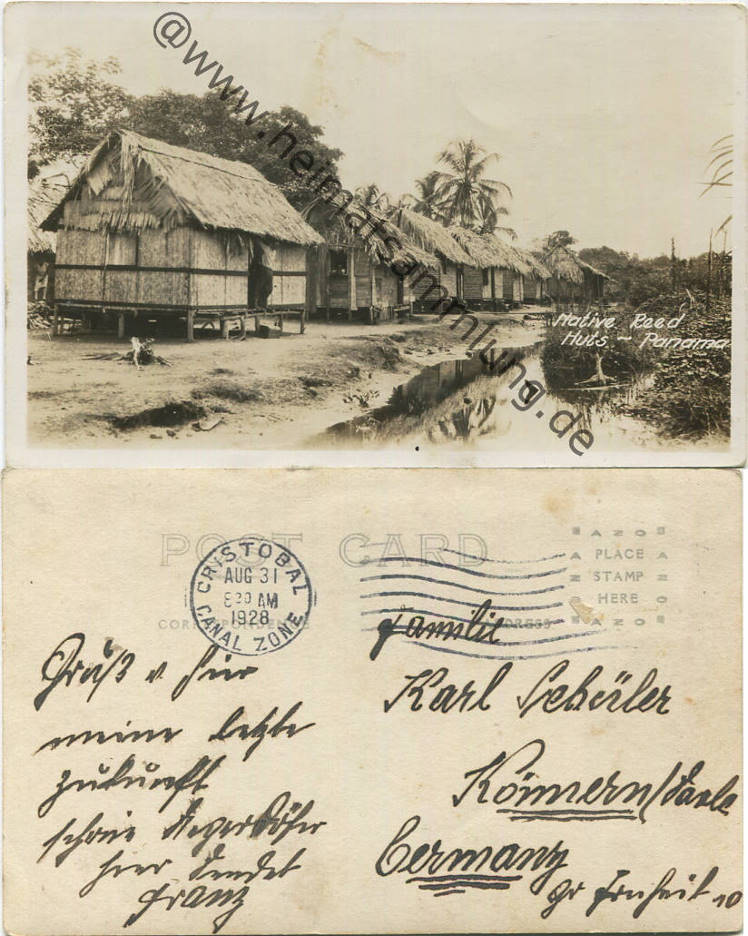 @www.heimatsammlung.de
Native Reed
Huts. - Panama
POST CARD
CRISTOBAL
AUG 31
8 30 AM
1928
CANAL ZONE
AZO
PLACE
STAMP
HERE
AZO
CORRESPONDENCE
ADDRESS
Gruß v hier
meine letzte
zukunft
schöne
hier sendet
Franz
Familie
Karl Schüler
Könnern/Saale
Germany
Gr Freiheit 10